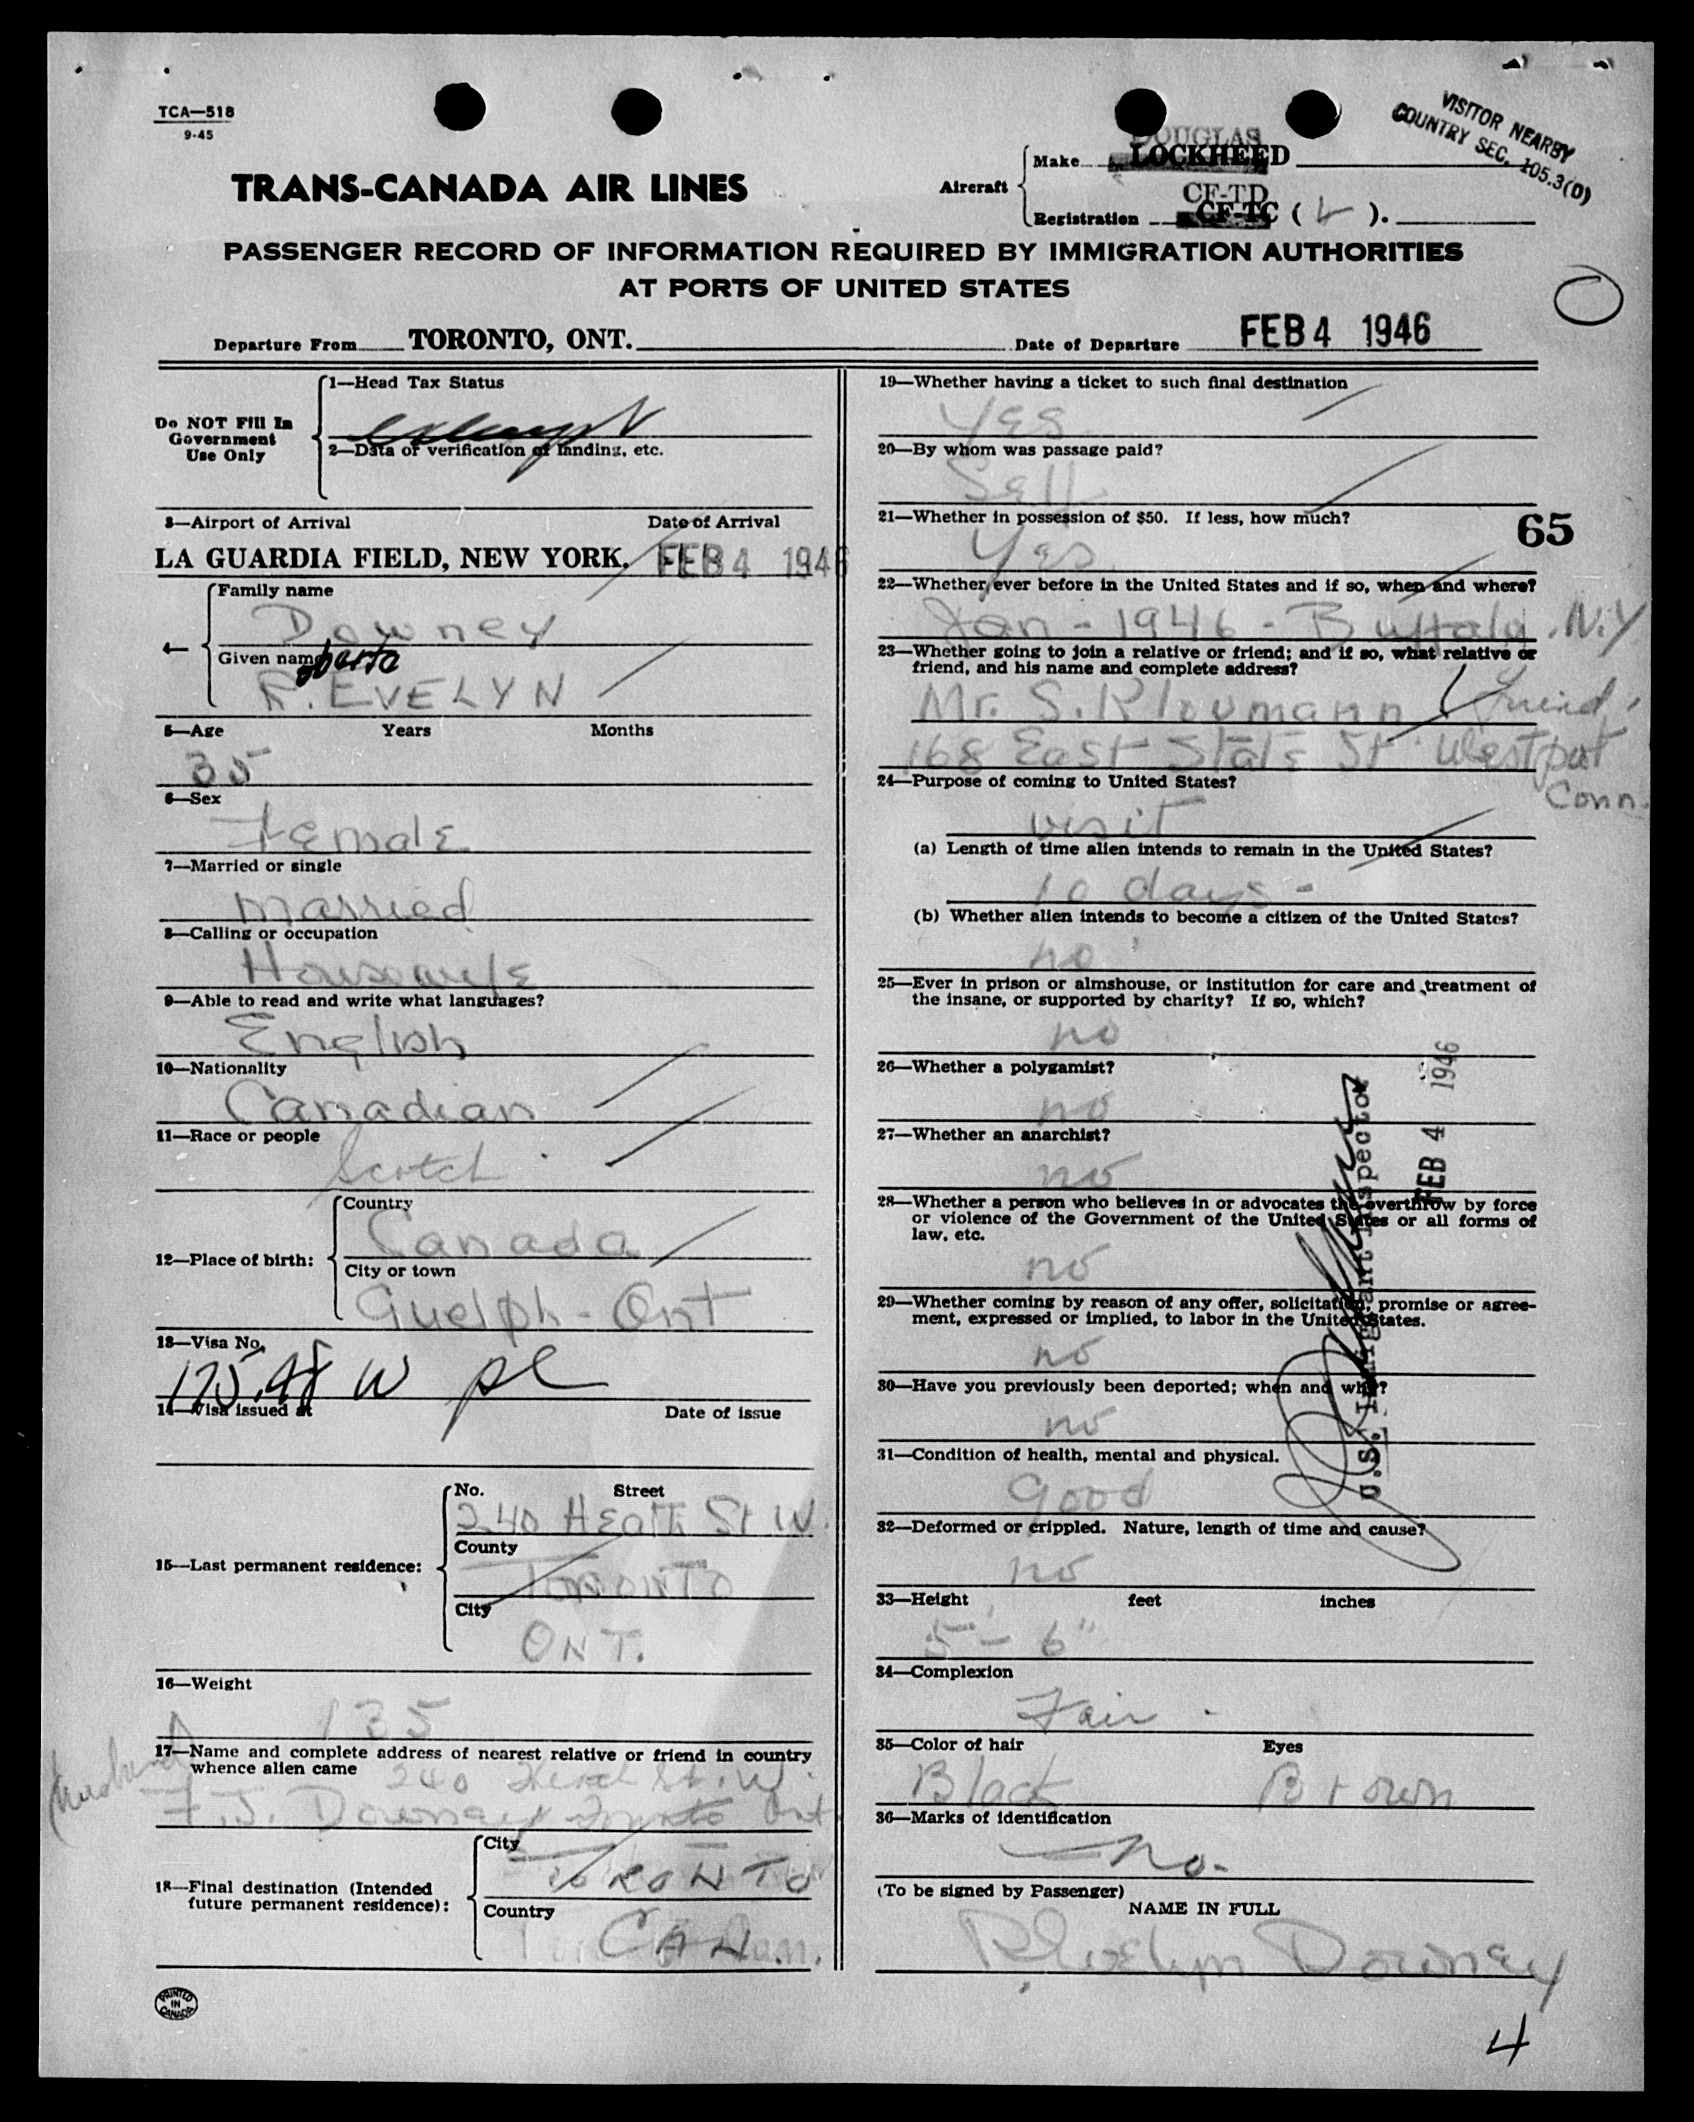 TCA—518
9-45
VISITOR NEARBY
COUNTRY SEC. 105.3(D)
TRANS-CANADA AIR LINES
Aircraft
Make DOUGLAS
LOCKHEED
CF-TD
Registration CF-TC ( L ).
PASSENGER RECORD OF INFORMATION REQUIRED BY IMMIGRATION AUTHORITIES
AT PORTS OF UNITED STATES
Departure From TORONTO, ONT. Date of Departure FEB 4 1946
Do NOT Fill In
Government
Use Only
1—Head Tax Status
exempt
2—Data of verification of landing, etc.
3—Airport of Arrival Date of Arrival
LA GUARDIA FIELD, NEW YORK. FEB 4 1946
4—
Family name
Downey
Given name
oberta
R. EVELYN
5—Age Years Months
35
6—Sex
Female
7—Married or single
Married
8—Calling or occupation
Housewife
9—Able to read and write what languages?
English
10—Nationality
Canadian
11—Race or people
Scotch
12—Place of birth:
Country
Canada
City or town
Guelph - Ont
13—Visa No.
175.48 W
14—Visa issued at Date of issue
15—Last permanent residence:
No. Street
240 Heath St W.
County
TORONTO
City
ONT.
16—Weight
135
17—Name and complete address of nearest relative or friend in country
whence alien came
240 Heath St. W.
(husband)
F. J. Downey Toronto Ont
18—Final destination (Intended
future permanent residence):
City
TORONTO
Country
CAN.
PRINTED
IN
CANADA
19—Whether having a ticket to such final destination
Yes
20—By whom was passage paid?
Self
21—Whether in possession of $50. If less, how much?
65
Yes
22—Whether ever before in the United States and if so, when and where?
Jan - 1946 - Buffalo. N.Y
23—Whether going to join a relative or friend; and if so, what relative or
friend, and his name and complete address?
Mr. S. Friend,
168 East State St Westport
Conn.
24—Purpose of coming to United States?
visit
(a) Length of time alien intends to remain in the United States?
10 days -
(b) Whether alien intends to become a citizen of the United States?
no
25—Ever in prison or almshouse, or institution for care and treatment of
the insane, or supported by charity? If so, which?
no
26—Whether a polygamist?
no
27—Whether an anarchist?
no
28—Whether a person who believes in or advocates the overthrow by force
or violence of the Government of the United States or all forms of
law, etc.
no
29—Whether coming by reason of any offer, solicitation, promise or agree-
ment, expressed or implied, to labor in the United States.
no
30—Have you previously been deported; when and why?
no
31—Condition of health, mental and physical.
good
32—Deformed or crippled. Nature, length of time and cause?
no
33—Height feet inches
5' - 6"
34—Complexion
Fair
35—Color of hair Eyes
Black Brown
36—Marks of identification
— No.
(To be signed by Passenger)
NAME IN FULL
R Evelyn Downey
U.S. Immigrant Inspector
FEB 4 1946
4